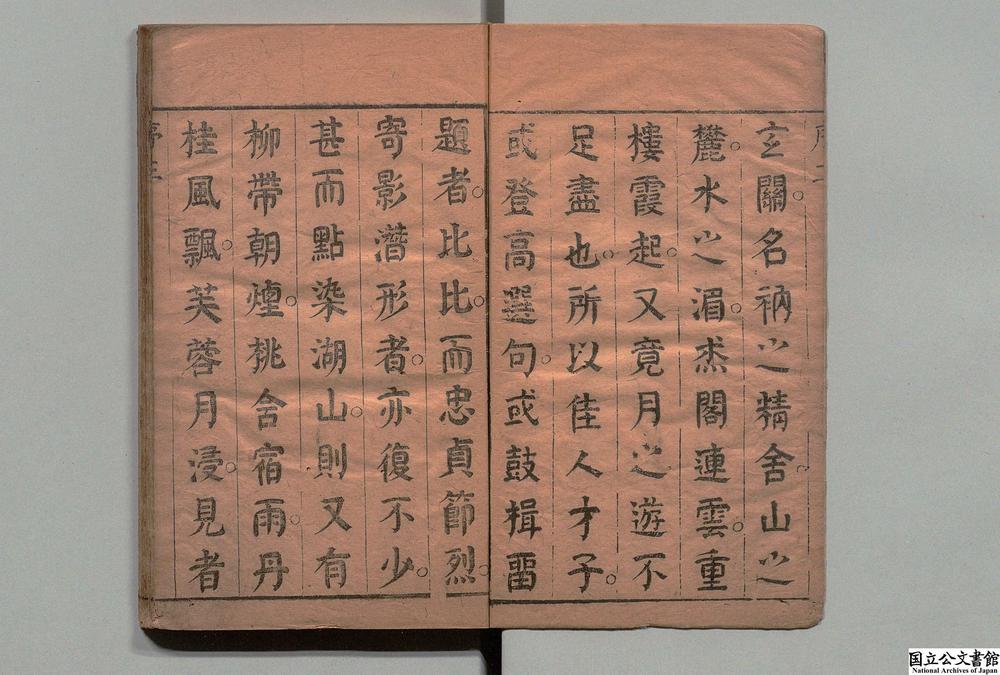 玄關。名衲之精舍。山之
麓。水之湄。杰閣連雲。重
樓霞起。又竟月之遊不
足盡也。所以佳人才子。
或登高選句。或鼓楫畱
題者。比比。而忠貞節烈。
寄影潛形者。亦復不少。
甚而點染湖山。則又有
柳帶朝煙。桃舍宿雨。丹
桂風飄。芙蓉月浸。見者
国立公文書館
National Archives of Japan